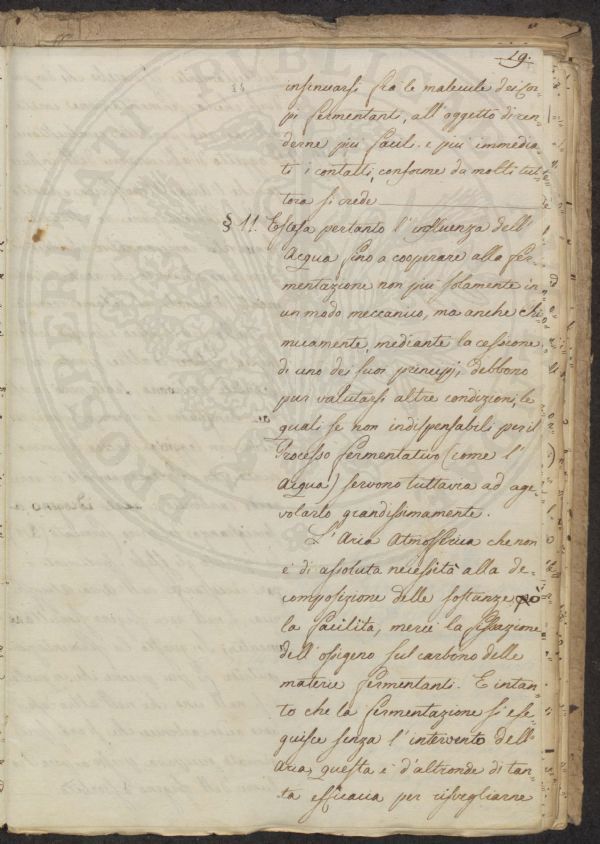 19.
insinuarsi fra le malecule dei Cor-
pi fermentanti, all'oggetto di ren-
derne più facil. e più immedia-
ti i contatti, conforme da molti tut-
tora si crede
§ 11. Estesa pertanto l'influenza dell'
Acqua sino a cooperare alla fer-
mentazione non più solamente in
un modo meccanico, ma anche chi-
micamente, mediante la cessione
di uno dei suoi principj, debbono
pur valutarsi altre condizioni, le
quali se non indispensabili per il
Processo fermentativo (come l'
Acqua) servono tuttavia ad age-
volarlo grandissimamente.
L'Aria Atmosferica che non
è di assoluta necessità alla de-
composizione delle sostanze
la facilita, mercè la fissazione
dell'ossigeno sul carbono delle
materie fermentanti. E intan-
to che la fermentazione si ese-
guisce senza l'intervento dell'
Aria, questa è d'altronde di tan-
ta efficacia per risvegliarne
PROSPERITATI PUBLICAE